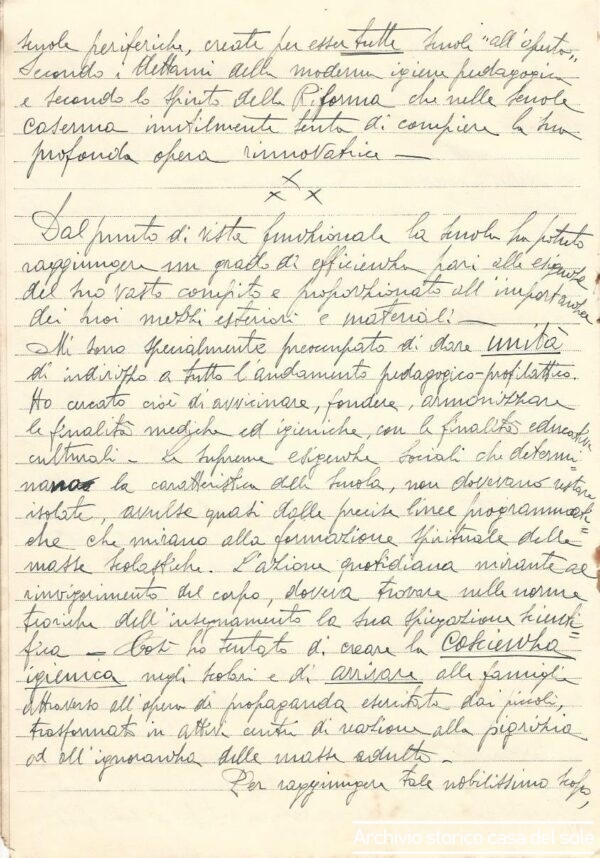 scuole periferiche, create per esser tutte scuole "all'aperto"
Secondo i dettami della moderna igiene pedagogica
e secondo lo spirito della Riforma che nelle scuole
caserma inutilmente tenta di compiere la sua
profonda opera rinnovatrice —
x
x x
Dal punto di vista funzionale la scuola ha potuto
raggiungere un grado di efficienza pari alle esigenze
del suo vasto compito e proporzionato all'importanza
dei suoi mezzi esteriori e materiali —
Mi sono specialmente preoccupato di dare unità
di indirizzo a tutto l'andamento pedagogico-profilattico.
Ho cercato cioè di avvicinare, fondere, armonizzare
le finalità mediche ed igieniche, con le finalità educative
culturali — Le supreme esigenze sociali che determi=
nano la caratteristica della Scuola, non dovevano restare
isolate, avulse quasi dalle precise linee programmati=
che che mirano alla formazione spirituale delle
masse scolastiche. L'azione quotidiana mirante al
rinvigorimento del corpo, doveva trovare nelle norme
teoriche dell'insegnamento la sua spiegazione scienti=
fica — Così ho tentato di creare la coscienza
igienica negli scolari e di arrivare alle famiglie
attraverso all'opera di propaganda esercitata dai piccoli,
trasformati in attivi centri di reazione alla pigrizia
ed all'ignoranza delle masse adulte —
Per raggiungere tale nobilissimo scopo,
Archivio storico casa del sole